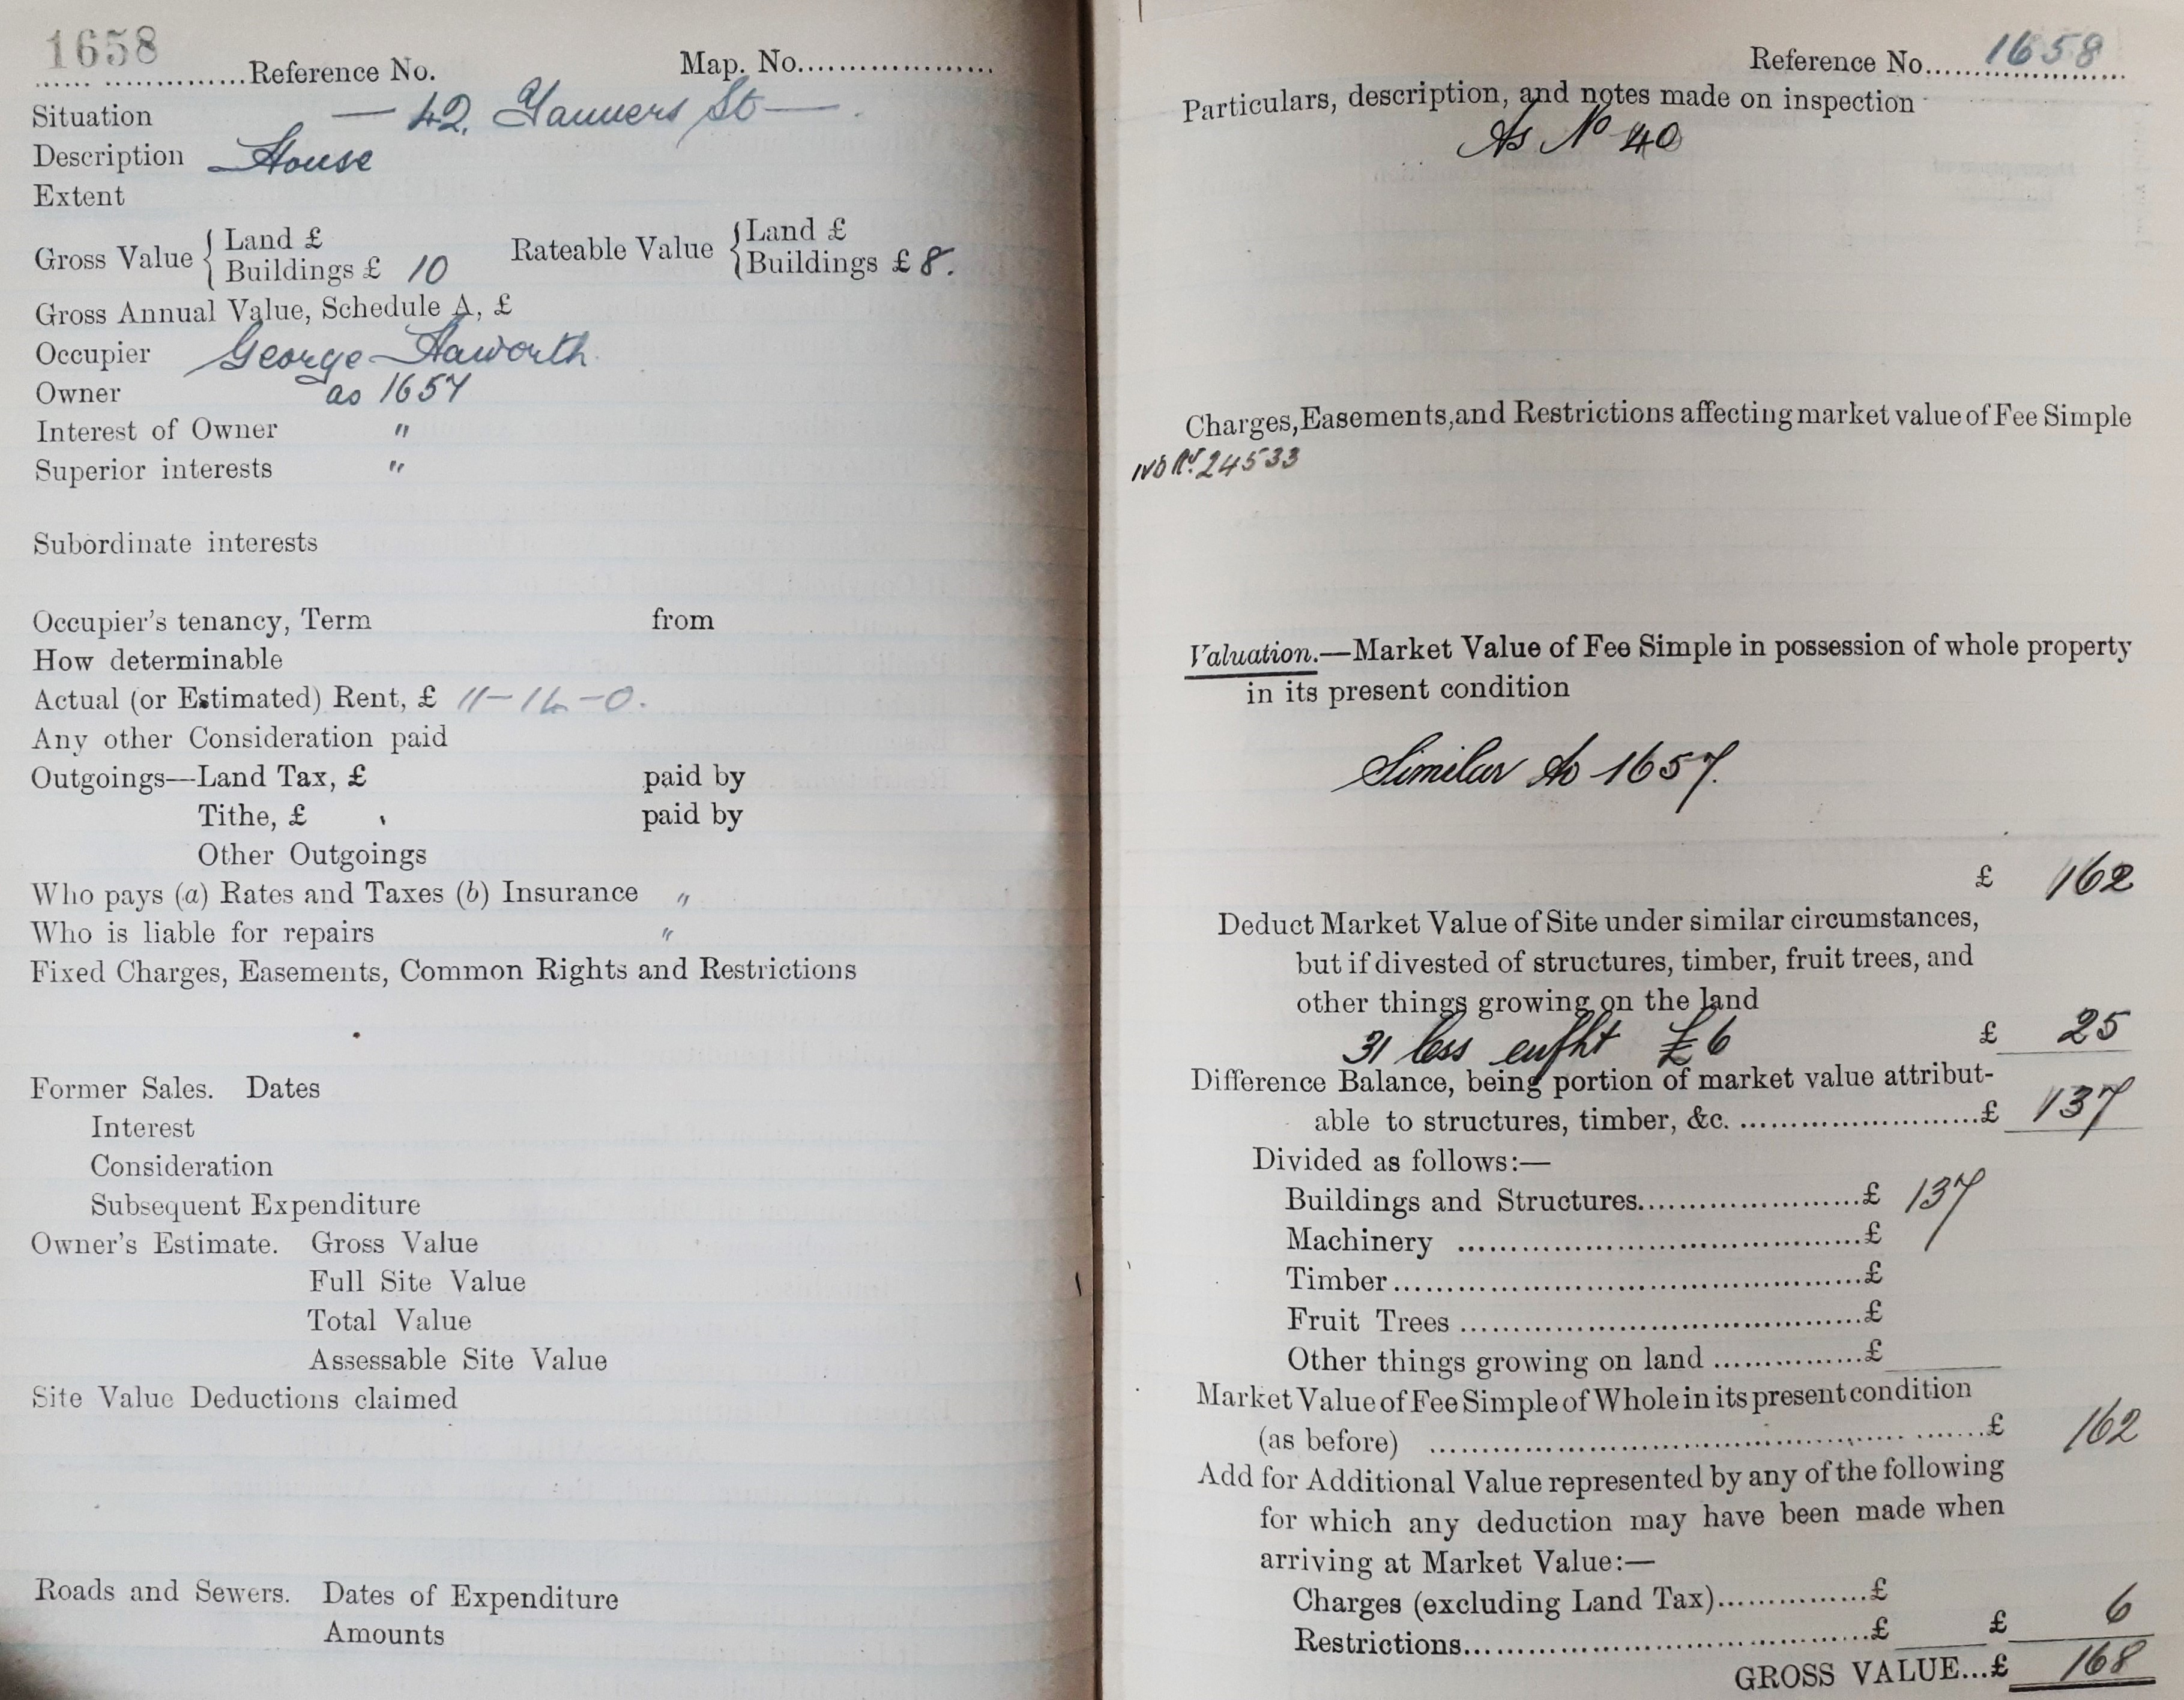 1658
.................Reference No. Map. No...................
Situation — 42, Tanners St — .
Description House
Extent
Gross Value { Land £ Rateable Value { Land £
Buildings £ 10 Buildings £ 8.
Gross Annual Value, Schedule A, £
Occupier George Haworth
Owner as 1657
Interest of Owner "
Superior interests "
Subordinate interests
Occupier's tenancy, Term from
How determinable
Actual (or Estimated) Rent, £ 11-14-0.
Any other Consideration paid
Outgoings—Land Tax, £ paid by
Tithe, £ paid by
Other Outgoings
Who pays (a) Rates and Taxes (b) Insurance "
Who is liable for repairs "
Fixed Charges, Easements, Common Rights and Restrictions
Former Sales. Dates
Interest
Consideration
Subsequent Expenditure
Owner's Estimate. Gross Value
Full Site Value
Total Value
Assessable Site Value
Site Value Deductions claimed
Roads and Sewers. Dates of Expenditure
Amounts
Reference No. 1658
Particulars, description, and notes made on inspection
As No 40
Charges, Easements, and Restrictions affecting market value of Fee Simple
24533
Valuation.—Market Value of Fee Simple in possession of whole property
in its present condition
Similar to 1657.
£ 162
Deduct Market Value of Site under similar circumstances,
but if divested of structures, timber, fruit trees, and
other things growing on the land
31 less £6 £ 25
Difference Balance, being portion of market value attribut-
able to structures, timber, &c. ........................£ 137
Divided as follows:—
Buildings and Structures......................£ 137
Machinery ........................................£
Timber..............................................£
Fruit Trees ........................................£
Other things growing on land ...............£
Market Value of Fee Simple of Whole in its present condition
(as before) ........................................................£ 162
Add for Additional Value represented by any of the following
for which any deduction may have been made when
arriving at Market Value:—
Charges (excluding Land Tax)...............£
Restrictions........................................£ £ 6
GROSS VALUE...£ 168